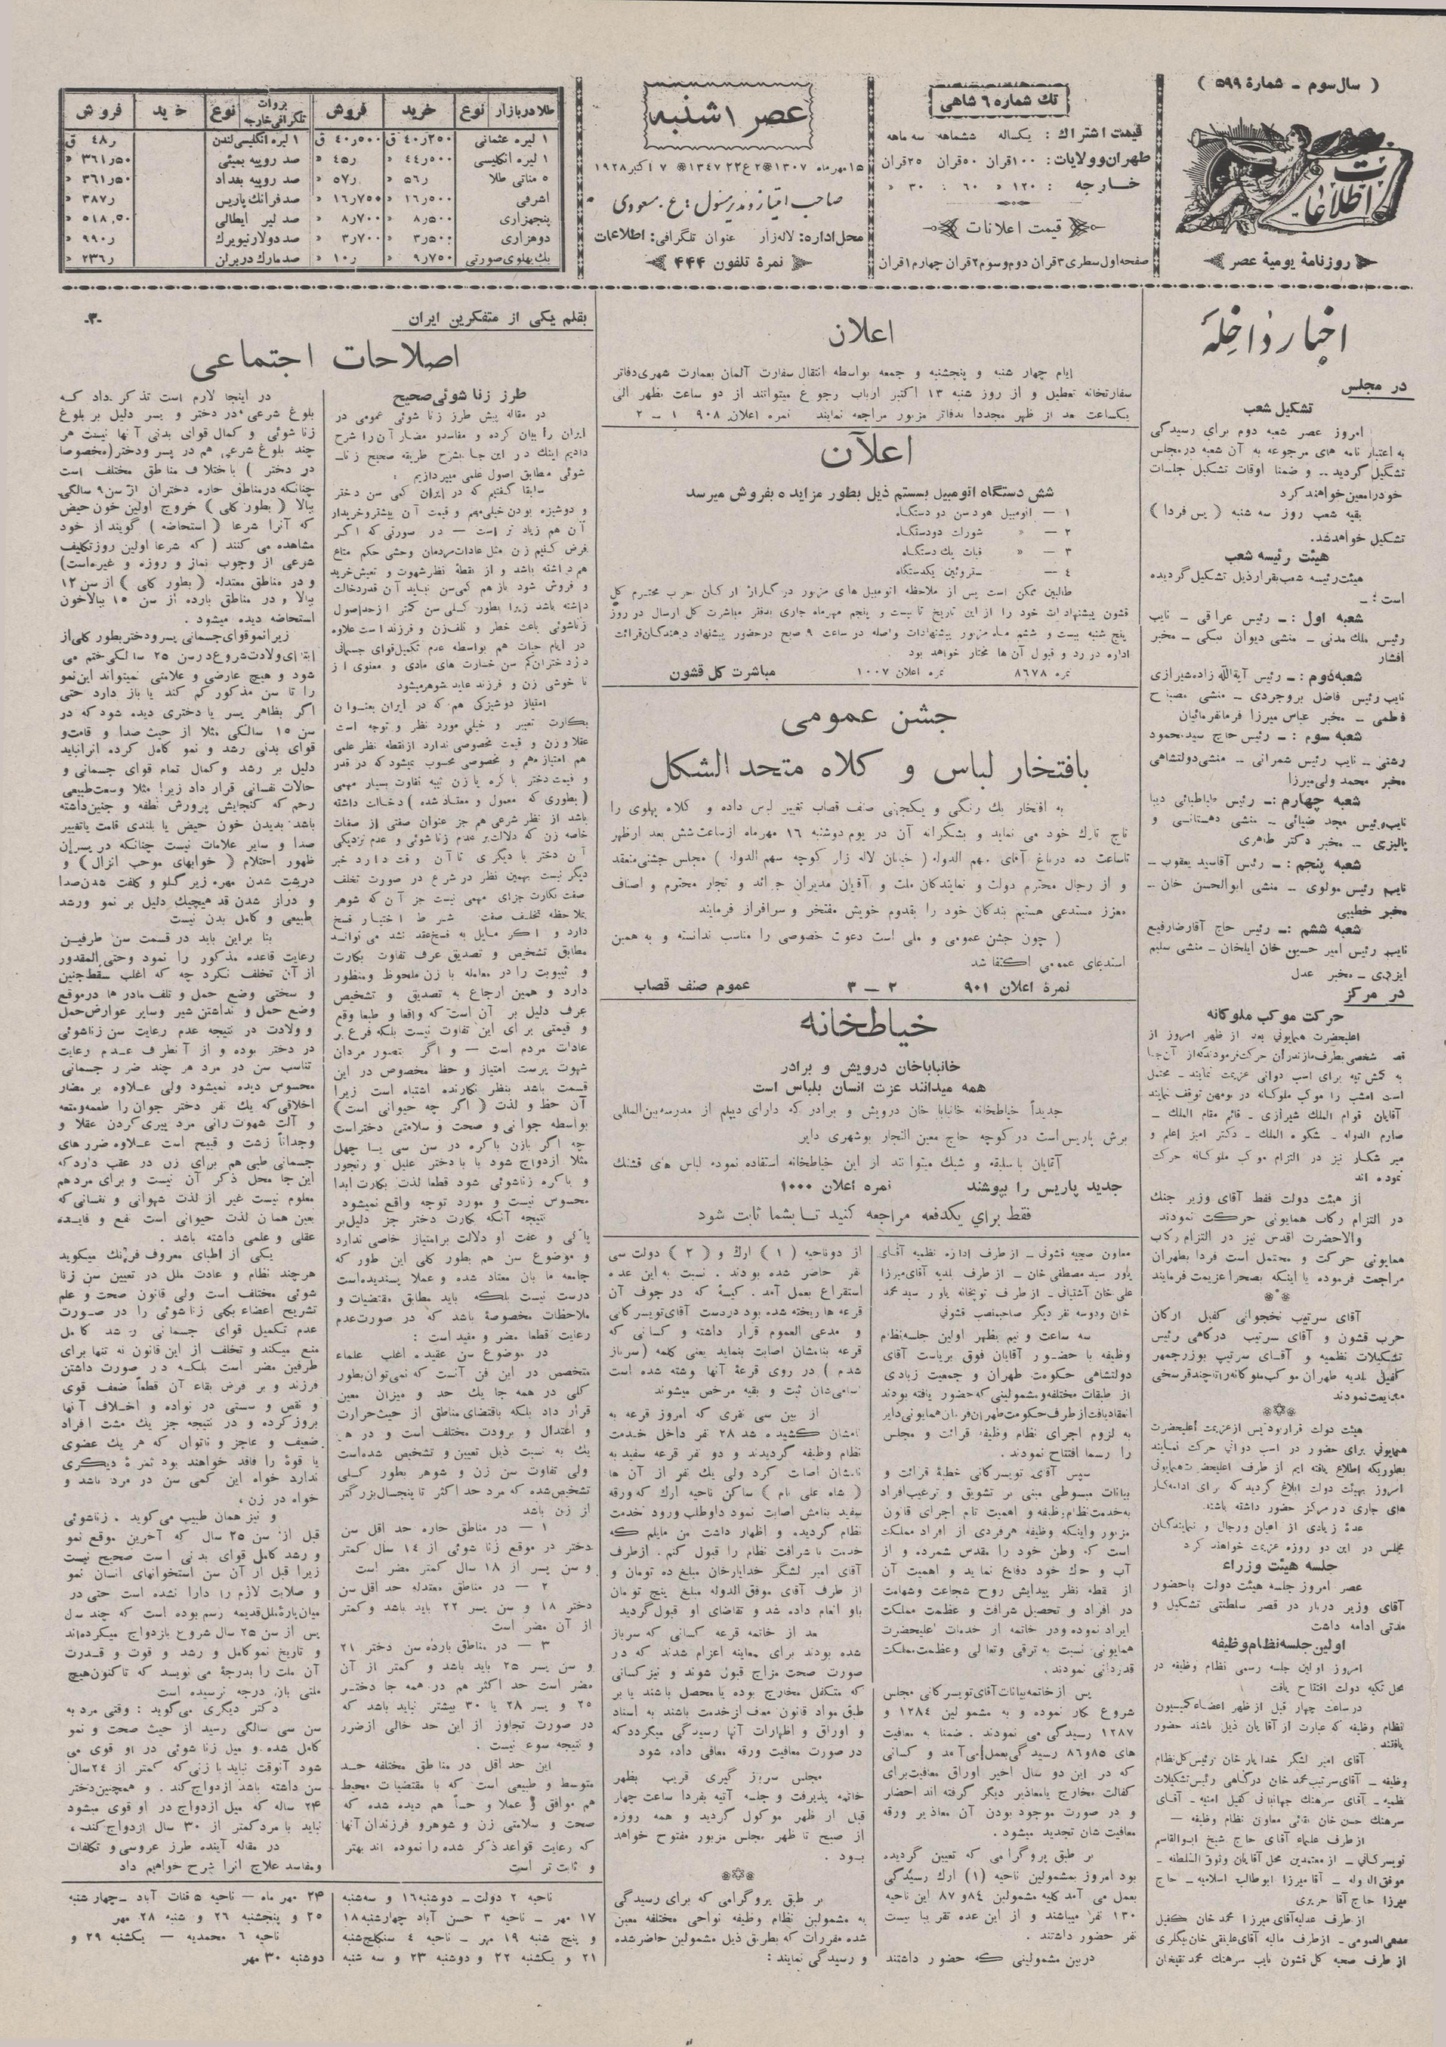 ( سال سوم - شمارهٔ ۵۹۹ )
اطلاعات
روزنامهٔ یومیهٔ عصر
تك شماره ۶ شاهی
قیمت اشتراك : یكساله ششماهه سه ماهه
طهران وولایات : ۱۰۰ قران ۵۰ قران ۲۵ قران
خارجه : ۱۲۰ « ۶۰ : ۳۰ «
قیمت اعلانات
صفحه اول سطری ۳ قران دوم و سوم ۲ قران چهارم ۱ قران
عصر ۱ شنبه
۱۵ مهر ماه ۱۳۰۷ * ۲۲ ع ۲ ۱۳۴۷ * ۷ اكتبر ۱۹۲۸
صاحب امتیاز و مدیر مسئول : ع . مسعودی
محل اداره : لاله زار عنوان تلگرافی : اطلاعات
نمرهٔ تلفون ۴۴۴
طلا در بازار نوع خرید فروش بروات تلگرافی خارجه نوع خرید فروش
۱ لیره عثمانی ۴۰ر۲۵۰ ق ۴۰ر۵۰۰ ق ۱ لیره انگلیسی لندن ۴۸ر ق
۱ لیره انگلیسی ۴۴ر۵۰۰ « ۴۵ر « صد روپیه بمبئی ۳۶۱ر۵۰ «
۵ مناتی طلا ۵۶ر « ۵۷ر « صد روپیه بغداد ۳۶۱ر۵۰ «
اشرفی ۱۶ر۵۰۰ « ۱۶ر۷۵۰ « صد فرانك پاریس ۳۸۷ر «
پنجهزاری ۸ر۵۰۰ « ۸ر۷۰۰ « صد لیر ایطالی ۵۱۸,۵۰ «
دوهزاری ۳ر۵۰۰ « ۳ر۷۰۰ « صد دولار نیویرك ۹۹۰ر «
یك پهلوی صورتی ۹ر۷۵۰ « ۱۰ر « صد مارك در برلن ۲۳۶ر «
اخبار داخله
در مجلس
تشكیل شعب
امروز عصر شعبه دوم برای رسیدگی
به اعتبار نامه های مرجوعه به آن شعبه در مجلس
تشگیل گردید - و ضمنا اوقات تشكیل جلسات
خود را معین خواهند كرد
بقیه شعب روز سه شنبه ( پس فردا )
تشكیل خواهد شد.
هیئت رئیسه شعب
هیئت رئیسه شعب بقرار ذیل تشكیل گردیده
است :-
شعبه اول :- رئیس عراقی - نایب
رئیس ملك مدنی - منشی دیوان بیگی - مخبر
افشار
شعبه دوم :- رئیس آیة الله زاده شیرازی
نایب رئیس فاضل بروجردی - منشی مصباح
فاطمی - مخبر عباس میرزا فرمانفرمائیان
شعبه سوم :- رئیس حاج سید محمود
رشتی - نایب رئیس شمرانی - منشی دولتشاهی
مخبر محمد ولی میرزا
شعبه چهارم :- رئیس طباطبائی دیبا
نایب رئیس مجد ضیائی - منشی دهستانی و
پالیزی - مخبر دكتر طاهری
شعبه پنجم :- رئیس آقا سید یعقوب -
نایب رئیس مولوی - منشی ابوالحسن خان -
مخبر خطیبی
شعبه ششم :- رئیس حاج آقا رضا رفیع
نایب رئیس امیر حسین خان ایلخان - منشی سلیم
ایزدی - مخبر عدل
در مركز
حركت موكب ملوكانه
اعلیحضرت همایونی بعد از ظهر امروز از
قصر شخصی بطرف مازندران حركت فرمودند كه از آن جا
به گمش تپه برای اسب دوانی عزیمت نمایند - محتمل
است امشب را موكب ملوكانه در بومهن توقف نمایند
آقایان قوام الملك شیرازی - قائم مقام الملك -
صارم الدوله - شكوه الملك - دكتر امیر اعلم و
میر شكار نیز در التزام موكب ملوكانه حركت
نموده اند
از هیئت دولت فقط آقای وزیر جنك
در التزام ركاب همایونی حركت نمودند
والاحضرت اقدس نیز در التزام ركاب
همایونی حركت و محتمل است فردا بطهران
مراجعت فرموده یا اینكه بصحرا عزیمت فرمایند
آقای سرتیپ نخجوانی كفیل اركان
حرب قشون و آقای سرتیپ درگاهی رئیس
تشكیلات نظمیه و آقای سرتیپ بوذرجمهر
كفیل بلدیه طهران موكب ملوكانه را تا چند فرسخی
مشایعت نمودند
هیئت دولت قرار بود پس از عزیمت اعلیحضرت
همایونی برای حضور در اسب دوانی حركت نمایند
بطوریكه اطلاع یافته ایم از طرف اعلیحضرت همایونی
امروز بهیئت دولت ابلاغ گردید كه برای ادامه كار
های جاری در مركز حضور داشته باشند
عدهٔ زیادی از اعیان و رجال و نمایندگان
مجلس در این دو روزه عزیمت خواهند كرد
جلسه هیئت وزراء
عصر امروز جلسه هیئت دولت باحضور
آقای وزیر دربار در قصر سلطنتی تشكیل و
مدتی ادامه داشت
اولین جلسه نظام وظیفه
امروز اولین جلسه رسمی نظام وظیفه در
محل تكیه دولت افتتاح یافت
در ساعت چهار قبل از ظهر اعضاء كمیسیون
نظام وظیفه كه عبارت از آقایان ذیل باشند حضور
یافتند
آقای امیر لشگر خدایار خان رئیس كل نظام
وظیفه - آقای سرتیب محمد خان درگاهی رئیس تشكیلات
نظمیه - آقای سرهنك جهانبانی كفیل امنیه - آقای
سرهنك حسن خان بقائی معاون نظام وظیفه -
از طرف علماء آقای حاج شیخ ابوالقاسم
تویسركانی - از معتمدین محل آقایان وثوق السلطنه -
موفق الدوله - آقا میرزا ابوطالب اسلامیه - حاج
میرزا حاج آقا حریری
از طرف عدلیه آقای میرزا محمد خان كفیل
مدعی العمومی - از طرف مالیه آقای علینقی خان بیگلری
از طرف صحیه كل قشون نایب سرهنك محمد تقیخان
اعلان
ایام چهار شنبه و پنجشنبه و جمعه بواسطه انتقال سفارت آلمان بعمارت شهری دفاتر
سفارتخانه تعطیل و از روز شنبه ۱۳ اكتبر ارباب رجوع میتوانند از دو ساعت بظهر الی
یكساعت بعد از ظهر مجددا بدفاتر مزبور مراجعه نمایند نمره اعلان ۹۰۸ ۱ - ۲
اعلان
شش دستگاه اتومبیل بسیستم ذیل بطور مزایده بفروش میرسد
۱ - اتومبیل هودسن دو دستگاه
۲ - « شورلت دو دستگاه
۳ - « فیات یك دستگاه
۴ - سیتروئین یكدستگاه
طالبین ممكن است پس از ملاحظه اتومبیل های مزبور در گاراژ اركان حرب محترم كل
قشون پیشنهادات خود را از این تاریخ تا بیست و پنجم مهر ماه جاری بدفتر مباشرت كل ارسال در روز
پنج شنبه بیست و ششم ماه مزبور پیشنهادات واصله در ساعت ۹ صبح در حضور پیشنهاد دهندگان قرائت
اداره در رد و قبول آن ها مختار خواهد بود
نمره ۸۶۷۸ نمره اعلان ۱۰۰۷ مباشرت كل قشون
جشن عمومی
بافتخار لباس و كلاه متحد الشكل
به افتخار یك رنگی و یكجهتی صنف قصاب تغییر لباس داده و كلاه پهلوی را
تاج تارك خود می نماید و بشكرانه آن در یوم دوشنبه ۱۶ مهر ماه از ساعت شش بعد از ظهر
تا ساعت ده در باغ آقای سهم الدوله ( خیابان لاله زار كوچه سهم الدوله ) مجلس جشنی منعقد
و از رجال محترم دولت و نمایندگان ملت و آقایان مدیران جرائد و تجار محترم و اصناف
معزز مستدعی هستیم بندگان خود را بقدوم خویش مفتخر و سرافراز فرمایند
( چون جشن عمومی و ملی است دعوت خصوصی را مناسب ندانسته و به همین
استدعای عمومی اكتفا شد
نمرهٔ اعلان ۹۰۱ ۲ - ۳ عموم صنف قصاب
خیاطخانه
خانباباخان درویش و برادر
همه میدانند عزت انسان بلباس است
جدیداً خیاطخانه خانبابا خان درویش و برادر كه دارای دیپلم از مدرسه بین المللی
برش پاریس است در كوچه حاج معین التجار بوشهری دایر
آقایان با سلیقه و شیك میتوانند از این خیاطخانه استفاده نموده لباس های قشنك
جدید پاریس را بپوشند نمره اعلان ۱۰۰۰
فقط برای یكدفعه مراجعه كنید تا بشما ثابت شود
معاون صحیه قشونی - از طرف اداره نظمیه آقای
یاور سید مصطفی خان - از طرف بلدیه آقای میرزا
علی خان آشتیانی - از طرف توپخانه یاور سید محمد
خان و دوسه نفر دیگر صاحبمنصب قشونی
سه ساعت و نیم بظهر اولین جلسه نظام
وظیفه با حضور آقایان فوق بریاست آقای
دولتشاهی حكومت طهران و جمعیت زیادی
از طبقات مختلفه و مشمولینی كه حضور یافته بودند
انعقاد یافت از طرف حكومت طهران فرمان همایونی دایر
به لزوم اجرای نظام وظیفه قرائت و مجلس
را رسما افتتاح نمودند.
سپس آقای تویسركانی خطبهٔ قرائت و
بیانات مبسوطی مبنی بر تشویق و ترغیب افراد
بخدمت نظام وظیفه و اهمیت تام اجرای قانون
مزبور و اینكه وظیفه هر فردی از افراد مملكت
است كه وطن خود را مقدس شمرده و از
آب و خاك خود دفاع نماید و اهمیت آن
از نقطه نظر پیدایش روح شجاعت و شهامت
در افراد و تحصیل شرافت و عظمت مملكت
ایراد نموده و در خاتمه از خدمات اعلیحضرت
همایونی نسبت به ترقی و تعالی و عظمت مملكت
قدردانی نمودند.
پس از خاتمه بیانات آقای تویسركانی مجلس
شروع بكار نموده و به مشمولین ۱۲۸۴ و
۱۲۸۷ رسیدگی می نمودند. ضمنا به معافیت
های ۸۵ و ۸۶ رسیدگی بعمل می آمد و كسانی
كه در این دو سال اخیر اوراق معافیت برای
كفالت مخارج یا معاذیر دیگر گرفته اند احضار
و در صورت موجود بودن آن معاذیر ورقه
معافیت شان تجدید میشود.
بر طبق پروگرامی كه تعیین گردیده
بود امروز بمشمولین ناحیه (۱) ارك رسیدگی
بعمل می آمد كلیه مشمولین ۸۴ و ۸۷ این ناحیه
۱۳۰ نفر میباشند و از این عده تقریبا بیست
نفر حضور داشتند .
در بین مشمولینی كه حضور داشتند
از دو ناحیه ( ۱ ) ارك و ( ۲ ) دولت سی
نفر حاضر شده بودند . نسبت به این عده
استقراع بعمل آمد . كیسهٔ كه در جوف آن
قرعه ها ریخته شده بود در دست آقای تویسركانی
و مدعی العموم قرار داشته و كسانی كه
قرعه بنامشان اصابت بنماید یعنی كلمه ( سرباز
شدم ) در روی قرعهٔ آنها نوشته شده است
اسامی شان ثبت و بقیه مرخص میشوند
از بین سی نفری كه امروز قرعه به
نامشان كشیده شد ۲۸ نفر داخل خدمت
نظام وظیفه گردیدند و دو نفر قرعه سفید به
نامشان اصابت كرد ولی یك نفر از آن ها
( شاه علی نام ) ساكن ناحیه ارك كه ورقه
سفید بنامش اصابت نمود داوطلب ورود خدمت
نظام گردیده و اظهار داشت من مایلم كه
خدمت با شرافت نظام را قبول كنم . از طرف
آقای امیر لشگر خدایارخان مبلغ ده تومان و
از طرف آقای موفق الدوله مبلغ پنج تومان
باو انعام داده شد و تقاضای او قبول گردید
بعد از خاتمه قرعه كسانی كه سرباز
شده بودند برای معاینه اعزام شدند كه در
صورت صحت مزاج قبول شوند و نیز كسانی
كه متكفل مخارج بوده یا محصل باشند یا بر
طبق مواد قانون معاف از خدمت باشند به اسناد
و اوراق و اظهارات آنها رسیدگی میگردد كه
در صورت معافیت ورقه معافی داده شود
مجلس سرباز گیری قریب بظهر
خاتمه پذیرفت و جلسه آتیه بفردا ساعت چهار
قبل از ظهر موكول گردید و همه روزه
از صبح تا ظهر مجلس مزبور مفتوح خواهد
بود .
بر طبق پروگرامی كه برای رسیدگی
به مشمولین نظام وظیفه نواحی مختلفه معین
شده مقررات كه بطریق ذیل مشمولین حاضر شده
و رسیدگی نمایند :
بقلم یكی از متفكرین ایران
-۳-
اصلاحات اجتماعی
طرز زناشوئی صحیح
در مقاله پیش طرز زناشوئی عمومی در
ایران را بیان كرده و مفاسد و مضار آن را شرح
دادیم اینك در این جا بشرح طریقه صحیح زنا-
شوئی مطابق اصول علمی میپردازیم :
سابقا گفتیم كه در ایران كمی سن دختر
و دوشیزه بودن خیلی مهم و قیمت آن بیشتر و خریدار
آن هم زیاد تر است - در صورتی كه اگر
فرض كنیم زن مثل عادات مردمان وحشی حكم متاع
هم داشته باشد و از نقطهٔ نظر شهوت و تعیش خرید
و فروش شود باز هم كمی سن نباید آن قدر دخالت
داشته باشد زیرا بطور كلی سن كمتر از حد اصول
زناشوئی باعث خطر و تلف زن و فرزند است علاوه
در ایام حیات هم بواسطه عدم تكمیل قوای جسمانی
در دختران كم سن خسارت های مادی و معنوی از
ناخوشی زن و فرزند عاید شوهر میشود
امتیاز دوشیزگی هم كه در ایران بعنوان
بكارت تعبیر و خیلی مورد نظر و توجه است
عقلا وزن و قیمت مخصوصی ندارد از نقطه نظر علمی
هم امتیاز مهم و مخصوصی محسوب نمیشود كه در قدر
و قیمت دختر باكره یا زن ثیبه تفاوت بسیار مهمی
(بطوری كه معمول و معتاد شده) دخالت داشته
باشد از نظر شرعی هم جز عنوان صفتی از صفات
خاصه زن كه دلالت بر عدم زناشوئی و عدم نزدیكی
آن دختر با دیگری تا آن وقت دارد خبر
دیگر نیست بهمین نظر در شرع در صورت تخلف
صفت بكارت جزای مهمی نیست جز آن كه شوهر
بملاحظه تخلف صفت شرط اختیار فسخ
دارد و اگر مایل به فسخ عقد نشد می توانند
مطابق تشخیص و تصدیق عرف تفاوت بكارت
و ثیبوبت را در معامله با زن ملحوظ و منظور
دارد و همین ارجاع به تصدیق و تشخیص
عرف دلیل بر آن است كه واقعا و طبعا وقع
و قیمتی برای این تفاوت نیست بلكه فرع بر
عادات مردم است - و اگر بتصور مردان
شهوت پرست امتیاز و حظ مخصوص در این
قسمت باشد بنظر نگارنده اشتباه است زیرا
آن حظ و لذت ( اگر چه حیوانی است)
بواسطه جوانی و صحت و سلامتی دختر است
چه اگر بازن باكره در سن سی یا چهل
مثلا ازدواج شود یا با دختر علیل و رنجور
و باكره زناشوئی شود قطعا لذت بكارت ابدا
محسوس نیست و مورد توجه واقع نمیشود
نتیجه آنكه بكارت دختر جز دلیل بر
پاكی و عفت او دلالت بر امتیاز خاصی ندارد
و موضوع سن هم بطور كلی این طور كه
جامعه ما بآن معتاد شده و عملا پسندیده است
درست نیست بلكه باید مطابق مقتضیات و
ملاحظات مخصوصهٔ باشد كه در صورت عدم
رعایت قطعا مضر و مفید است :
در موضوع سن عقیده اغلب علماء
متخصص در این فن آنست كه نمی توان بطور
كلی در همه جا یك حد و میزان معین
قرار داد بلكه باقتضای مناطق از حیث حرارت
و اعتدال و برودت مختلف است و در هر
یك به نسبت ذیل تعیین و تشخیص شده است
ولی تفاوت سن زن و شوهر بطور كلی
تشخیص شده كه مرد حد اكثر تا پنجسال بزرگتر
از زن باشد
۱ - در مناطق حاره حد اقل سن
دختر در موقع زنا شوئی از ۱۴ سال كمتر
و سن پسر از ۱۸ سال كمتر مضر است
۲ - در مناطق معتدله حد اقل سن
دختر ۱۸ و سن پسر ۲۲ باید باشد و كمتر
از آن مضر است
۳ - در مناطق بارده سن دختر ۲۱
و سن پسر ۲۵ باید باشد و كمتر از آن
مضر است حد اكثر هم در همه جا دختر
۲۵ و پسر ۲۸ یا ۳۰ بیشتر نباید باشد كه
در صورت تجاوز از این حد خالی از ضرر
و نتیجه سوء نیست .
این حد اقل در مناطق مختلفه حد
متوسط و طبیعی است كه با مقتضیات محیط
هم موافق و عملا و حساً هم دیده شده كه
صحت و سلامتی زن و شوهر و فرزندان آنها
كه رعایت قواعد ذكر شده را نموده اند بهتر
و ثابت تر است
در اینجا لازم است تذكر داد كه
بلوغ شرعی در دختر و پسر دلیل بر بلوغ
زناشوئی و كمال قوای بدنی آنها نیست هر
چند بلوغ شرعی هم در پسر و دختر (مخصوصا
در دختر ) باختلاف مناطق مختلف است
چنانكه در مناطق حاره دختران از سن ۹ سالگی
ببالا ( بطور كلی ) خروج اولین خون حیض
كه آنرا شرعا ( استحاضه ) گویند از خود
مشاهده می كنند ( كه شرعا اولین روز تكلیف
شرعی از وجوب نماز و روزه و غیره است)
و در مناطق معتدله ( بطور كلی ) از سن ۱۲
ببالا و در مناطق بارده از سن ۱۵ ببالا خون
استحاضه دیده میشود .
زیرا نمو قوای جسمانی پسر و دختر بطور كلی از
ابتدای ولادت شروع و در سن ۲۵ سالگی ختم می
شود و هیچ عارضی و علامتی نمیتواند این نمو
را تا سن مذكور كم كند یا باز دارد حتی
اگر بظاهر پسر یا دختری دیده شود كه در
سن ۱۵ سالگی مثلا از حیث صدا و قامت و
قوای بدنی رشد و نمو كامل كرده آنرا نباید
دلیل بر رشد و كمال تمام قوای جسمانی و
حالات نفسانی قرار داد زیرا مثلا وسعت طبیعی
رحم كه گنجایش پرورش نطفه و جنین داشته
باشد بدیدن خون حیض یا بلندی قامت یا تغییر
صدا و سایر علامات نیست چنانكه در پسران
ظهور احتلام ( خوابهای موجب انزال ) و
درشت شدن مهره زیر گلو و كلفت شدن صدا
و دراز شدن قد هیچیك دلیل بر نمو و رشد
طبیعی و كامل بدن نیست
بنا بر این باید در قسمت سن طرفین
رعایت قاعده مذكور را نمود و حتی المقدور
از آن تخلف نكرد چه كه اغلب سقط جنین
و سختی وضع حمل و تلف مادر ها در موقع
وضع حمل و نداشتن شیر و سایر عوارض حمل
و ولادت در نتیجه عدم رعایت سن زناشوئی
در دختر بوده و از آنطرف عدم رعایت
تناسب سن در مرد هر چند ضرر جسمانی
محسوس دیده نمیشود ولی علاوه بر مضار
اخلاقی كه یك نفر دختر جوان را طعمه و متعه
و آلت شهوت رانی مرد پیری كردن عقلا و
وجداناً زشت و قبیح است علاوه ضرر های
جسمانی طبی هم برای زن در عقب دارد كه
این جا محل ذكر آن نیست و برای مرد هم
معلوم نیست غیر از لذت شهوانی و نفسانی كه
بعین همان لذت حیوانی است نفع و فایده
عقلی و علمی داشته باشد .
یكی از اطبای معروف فرنك میگوید
هر چند نظام و عادت ملل در تعیین سن زنا
شوئی مختلف است ولی قانون صحت و علم
تشریح اعضاء بكلی زناشوئی را در صورت
عدم تكمیل قوای جسمانی و رشد كامل
منع میكند و تخلف از این قانون نه تنها برای
طرفین مضر است بلكه در صورت داشتن
فرزند و بر فرض بقاء آن قطعاً ضعف قوی
و نقص و سستی در نواده و اخلاف آنها
بروز كرده و در نتیجه جز یك مشت افراد
ضعیف و عاجز و ناتوان كه هر یك عضوی
یا قوهٔ را فاقد خواهند بود ثمرهٔ دیگری
ندارد خواه این كمی سن در مرد باشد و
خواه در زن ،
و نیز همان طبیب می گوید . زناشوئی
قبل از سن ۲۵ سال كه آخرین موقع نمو
و رشد كامل قوای بدنی است صحیح نیست
زیرا قبل از آن سن استخوانهای انسان نمو
و صلابت لازم را دارا نشده است حتی در
میان پارهٔ ملل قدیمه رسم بوده است كه چند سال
پس از سن ۲۵ سال شروع بازدواج میكرده اند
و تاریخ نمو كامل و رشد و قوت و قدرت
آن ملت را بدرجهٔ می نویسد كه تا كنون هیچ
ملتی بآن درجه نرسیده است
دكتر دیگری می گوید : وقتی مرد به
سن سی سالگی رسید از حیث صحت و نمو
كامل شده و میل زناشوئی در او قوی می
شود آنوقت نباید بازنی كه كمتر از ۲۴ سال
سن داشته باشد ازدواج كند . و همچنین دختر
۲۴ ساله كه میل ازدواج در او قوی میشود
نباید با مرد كمتر از ۳۰ سال ازدواج كند ،
در مقاله آینده طرز عروسی و تكلفات
و مفاسد علاج آنرا شرح خواهیم داد
ناحیه ۲ دولت - دوشنبه ۱۶ و سه شنبه
۱۷ مهر - ناحیه ۳ حسن آباد چهارشنبه ۱۸
و پنج شنبه ۱۹ مهر - ناحیه ۴ سنگلج شنبه
۲۱ و یكشنبه ۲۲ و دوشنبه ۲۳ و سه شنبه
۲۴ مهر ماه - ناحیه ۵ قنات آباد - چهارشنبه
۲۵ و پنجشنبه ۲۶ و شنبه ۲۸ مهر
ناحیه ۶ محمدیه - یكشنبه ۲۹ و
دوشنبه ۳۰ مهر